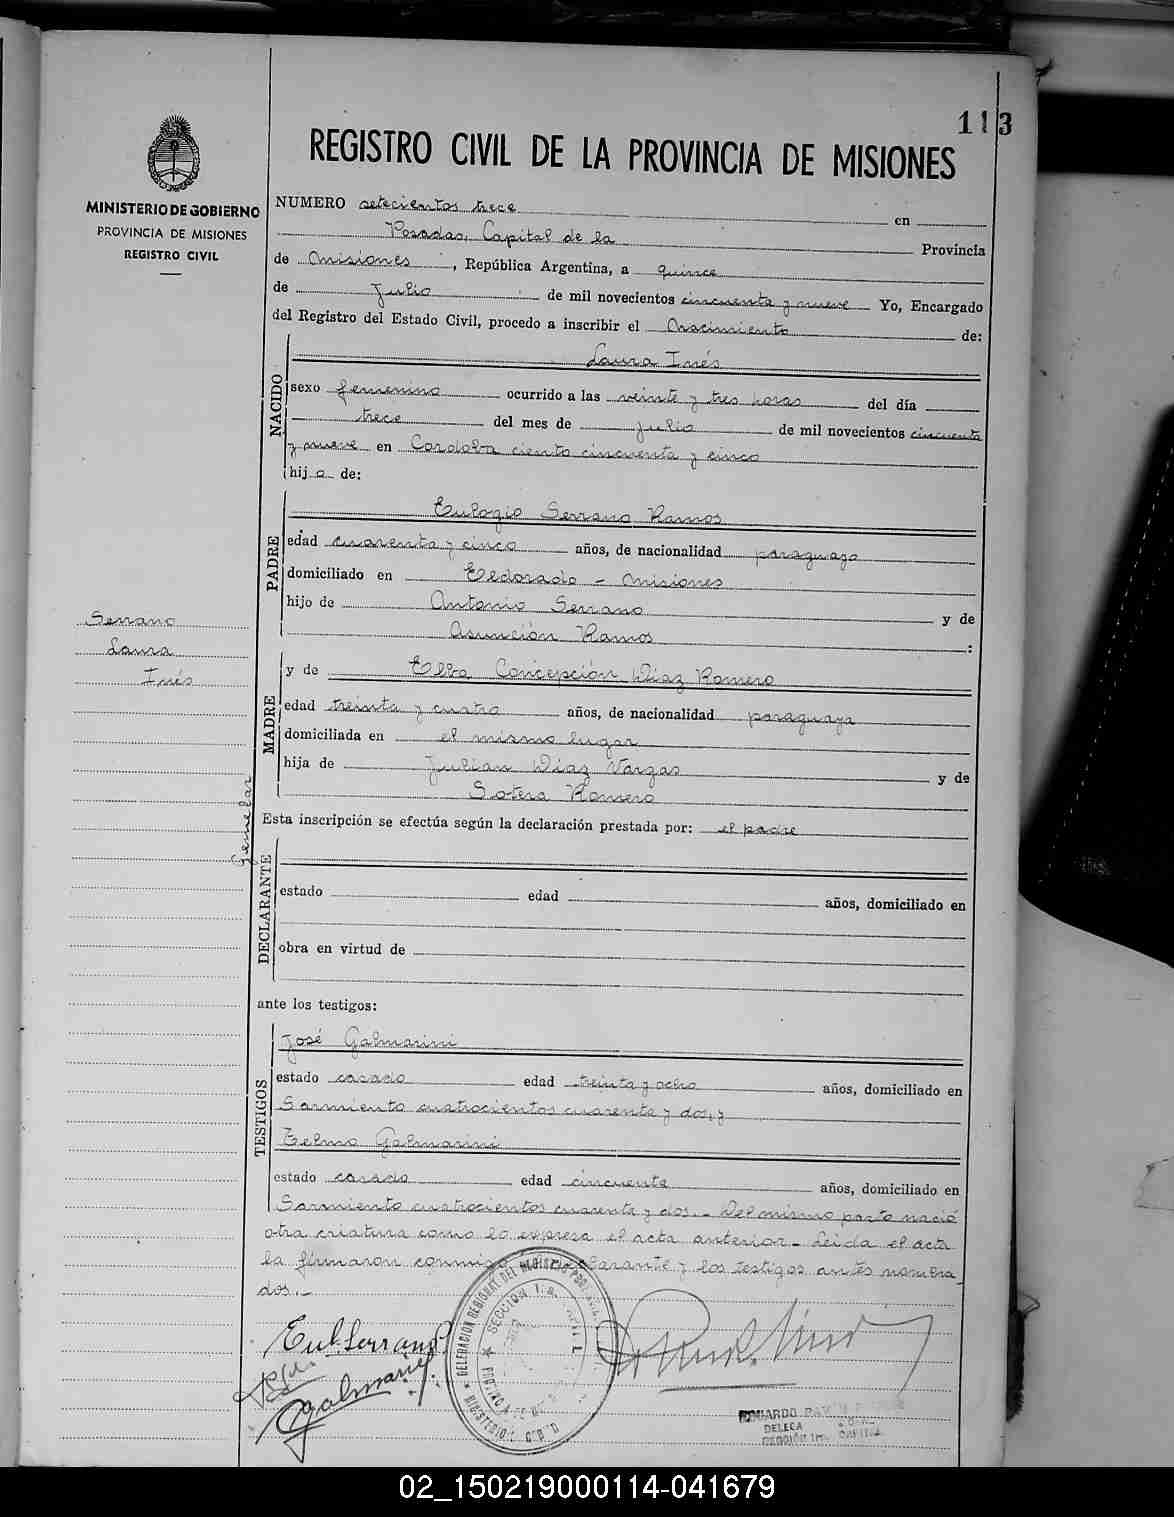 113
REGISTRO CIVIL DE LA PROVINCIA DE MISIONES
MINISTERIO DE GOBIERNO
PROVINCIA DE MISIONES
REGISTRO CIVIL
NUMERO setecientos trece en
Posadas, Capital de la Provincia
de Misiones, República Argentina, a quince
de Julio de mil novecientos cincuenta y nueve Yo, Encargado
del Registro del Estado Civil, procedo a inscribir el Nacimiento de:
NACIDO
Laura Inés
sexo femenino ocurrido a las veinte y tres horas del día
trece del mes de julio de mil novecientos cincuenta
y nueve en Cordoba ciento cincuenta y cinco
hij a de:
PADRE
Eulogio Serrano Ramos
edad cuarenta y cinco años, de nacionalidad paraguayo
domiciliado en Eldorado - Misiones
hijo de Antonio Serrano y de
Asunción Ramos :
Serrano
Laura
Inés
MADRE
y de Elba Concepción Diaz Romero
edad treinta y cuatro años, de nacionalidad paraguaya
domiciliada en el mismo lugar
hija de Julian Diaz Vargas y de
Sotera Romero
Gemelar
Esta inscripción se efectúa según la declaración prestada por: el padre
DECLARANTE
estado edad años, domiciliado en
obra en virtud de
ante los testigos:
TESTIGOS
José Galmarini
estado casado edad treinta y ocho años, domiciliado en
Sarmiento cuatrocientos cuarenta y dos, y
Telmo Galmarini
estado casado edad cincuenta años, domiciliado en
Sarmiento cuatrocientos cuarenta y dos. - Del mismo parto nació
otra criatura como lo expresa el acta anterior - Leida el acta
la firmaron conmigo el declarante y los testigos antes nombra
dos. -
Eul. Serrano R.
Galmarini
DELEGACION REGIONAL DEL REGISTRO
SECCION
EDUARDO
DELEGA
SECCIÓN 1ra. CAPITAL
02_150219000114-041679